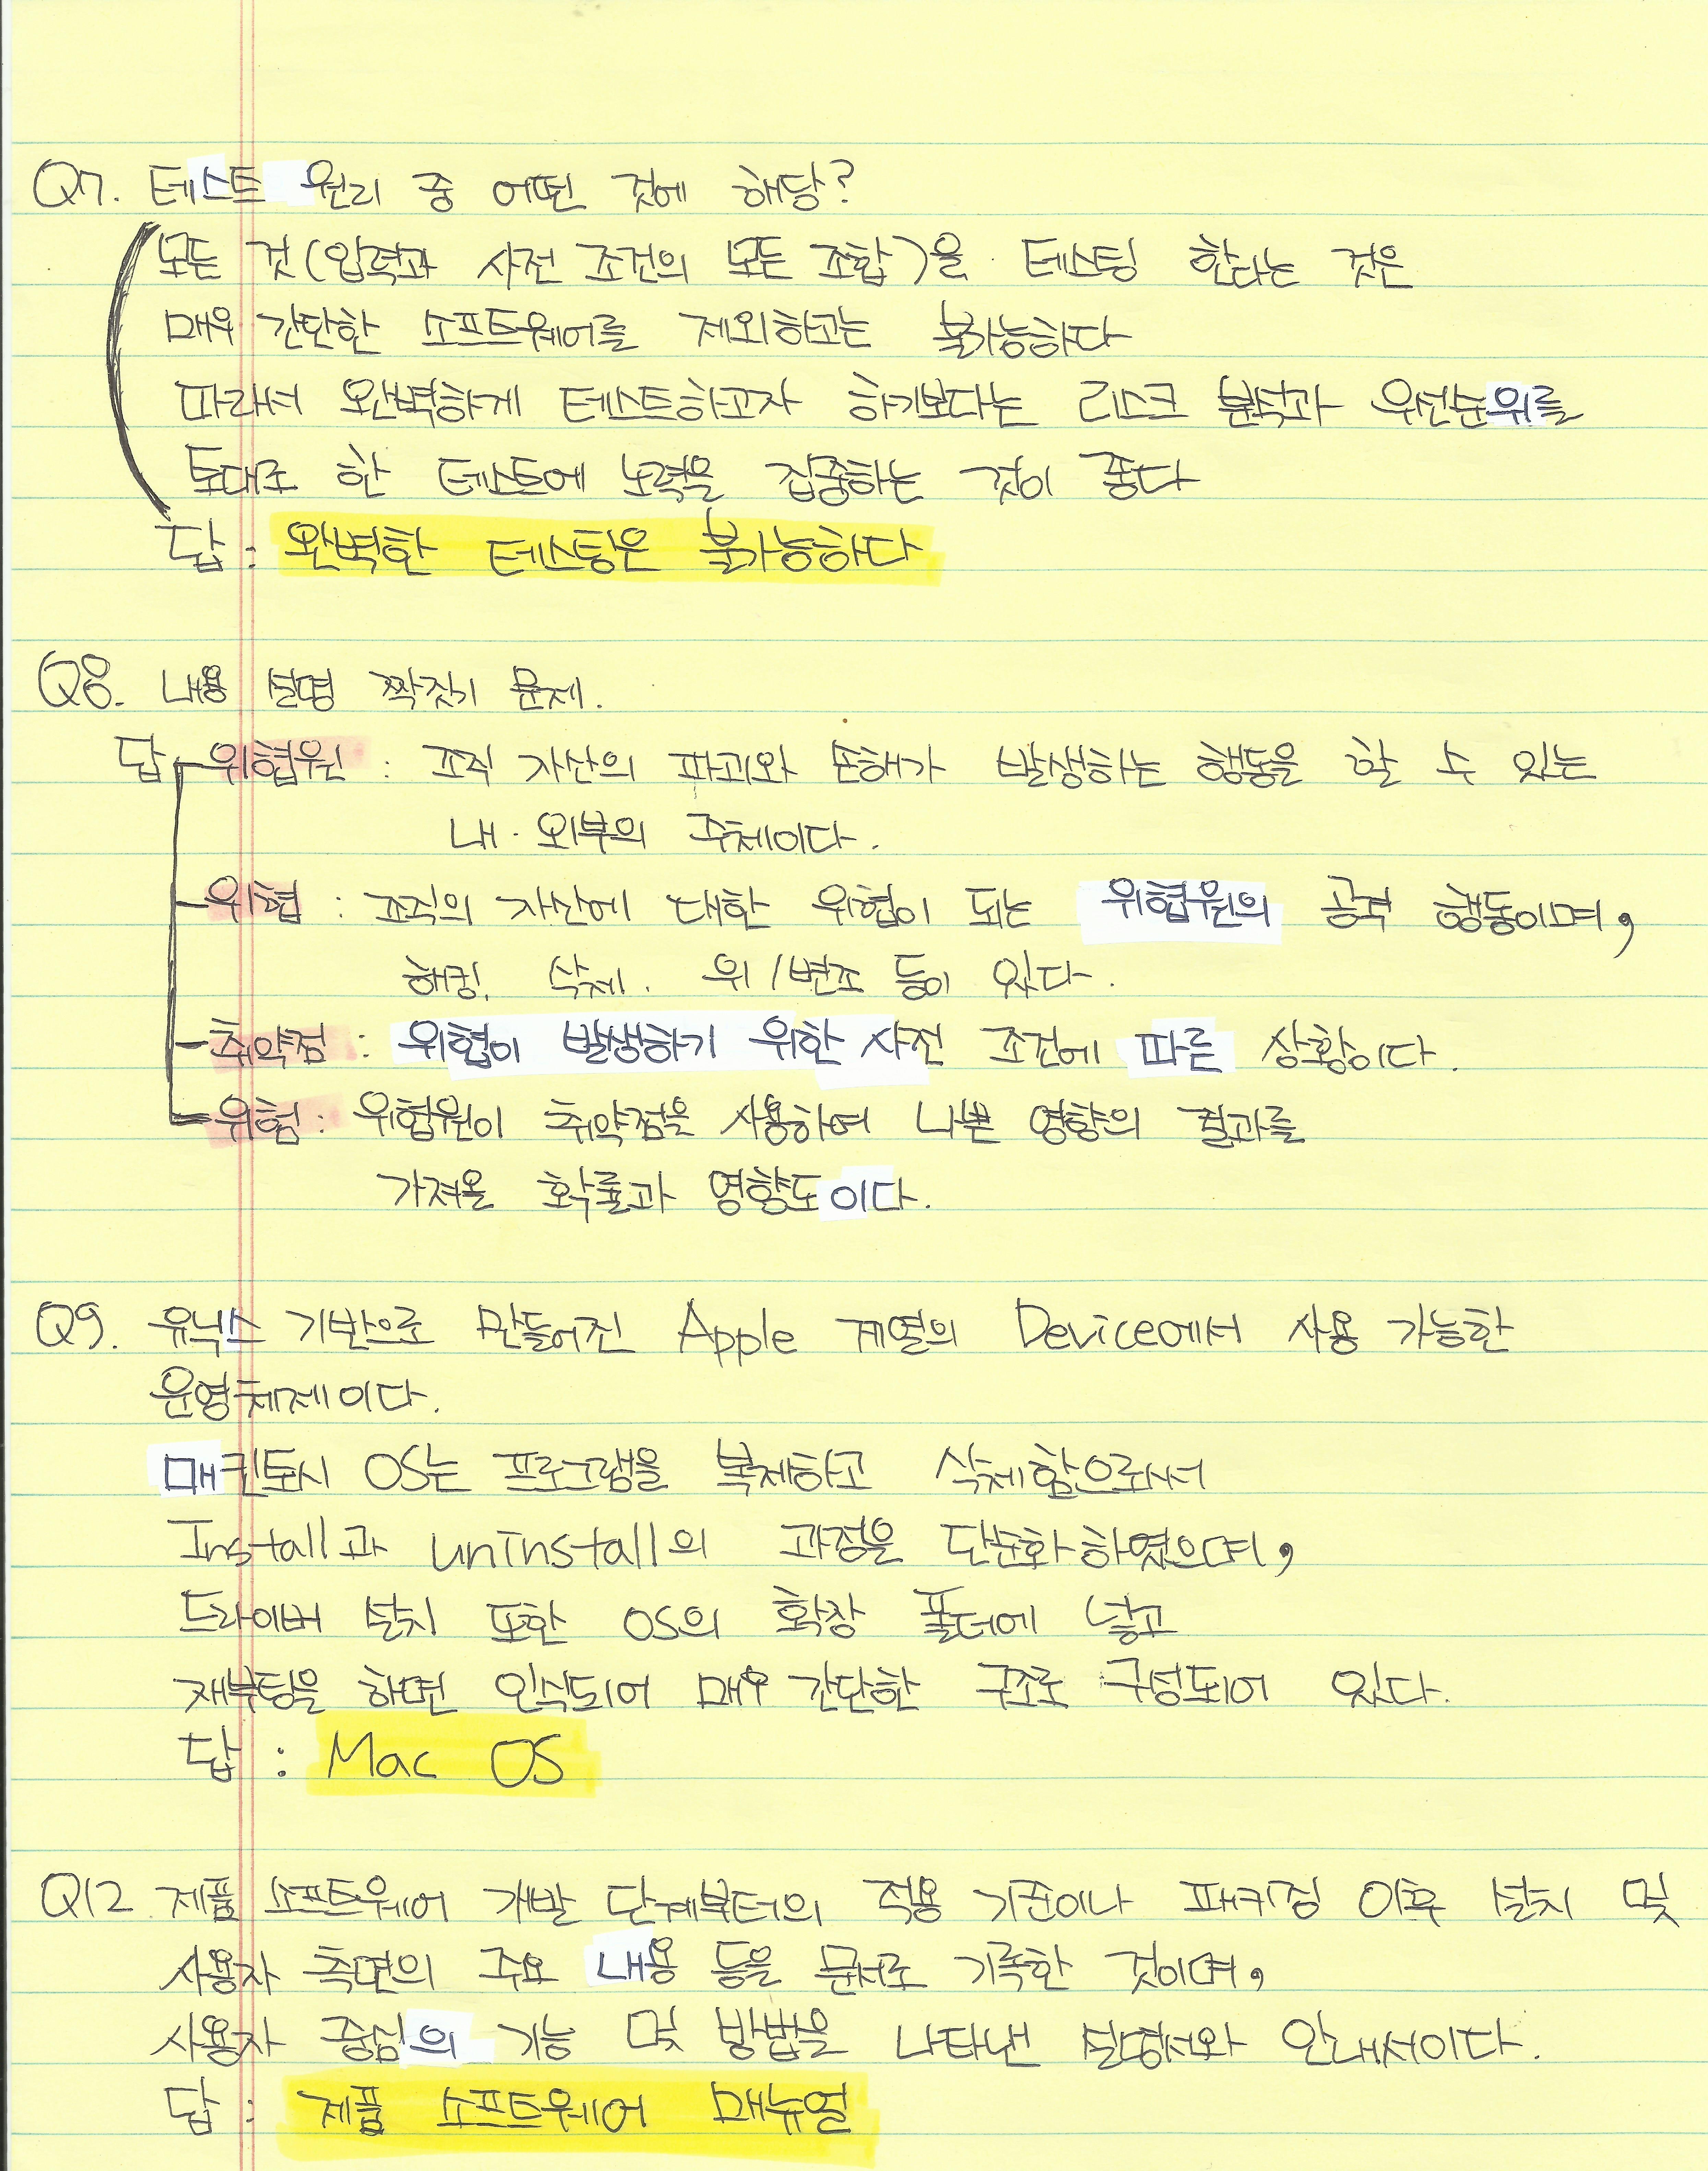 Q7. 테스트 원리 중 어떤 것에 해당?
모든 것(입력과 사전 조건의 모든 조합)을 테스팅 한다는 것은
매우 간단한 소프트웨어를 제외하고는 불가능하다
따라서 완벽하게 테스트하고자 하기보다는 리스크 분석과 우선순위를
토대로 한 테스트에 노력을 집중하는 것이 좋다
답 : 완벽한 테스팅은 불가능하다
Q8. 내용 설명 짝짓기 문제.
답 위협원 : 조직 자산의 파괴와 손해가 발생하는 행동을 할 수 있는
내·외부의 주체이다.
위협 : 조직의 자산에 대한 위협이 되는 위협원의 공격 행동이며,
해킹, 삭제, 위/변조 등이 있다.
취약점 : 위협이 발생하기 위한 사전 조건에 따른 상황이다.
위험 : 위협원이 취약점을 사용하여 나쁜 영향의 결과를
가져올 확률과 영향도이다.
Q9. 유닉스 기반으로 만들어진 Apple 계열의 Device에서 사용 가능한
운영체제이다.
매킨토시 OS는 프로그램을 복제하고 삭제함으로서
Install과 uninstall의 과정을 단순화 하였으며,
드라이버 설치 또한 OS의 확장 폴더에 넣고
재부팅을 하면 인식되어 매우 간단한 구조로 구성되어 있다.
답 : Mac OS
Q12 제품 소프트웨어 개발 단계부터의 적용 기준이나 패키징 이후 설치 및
사용자 측면의 주요 내용 등을 문서로 기록한 것이며,
사용자 중심의 기능 및 방법을 나타낸 설명서와 안내서이다.
답 : 제품 소프트웨어 매뉴얼